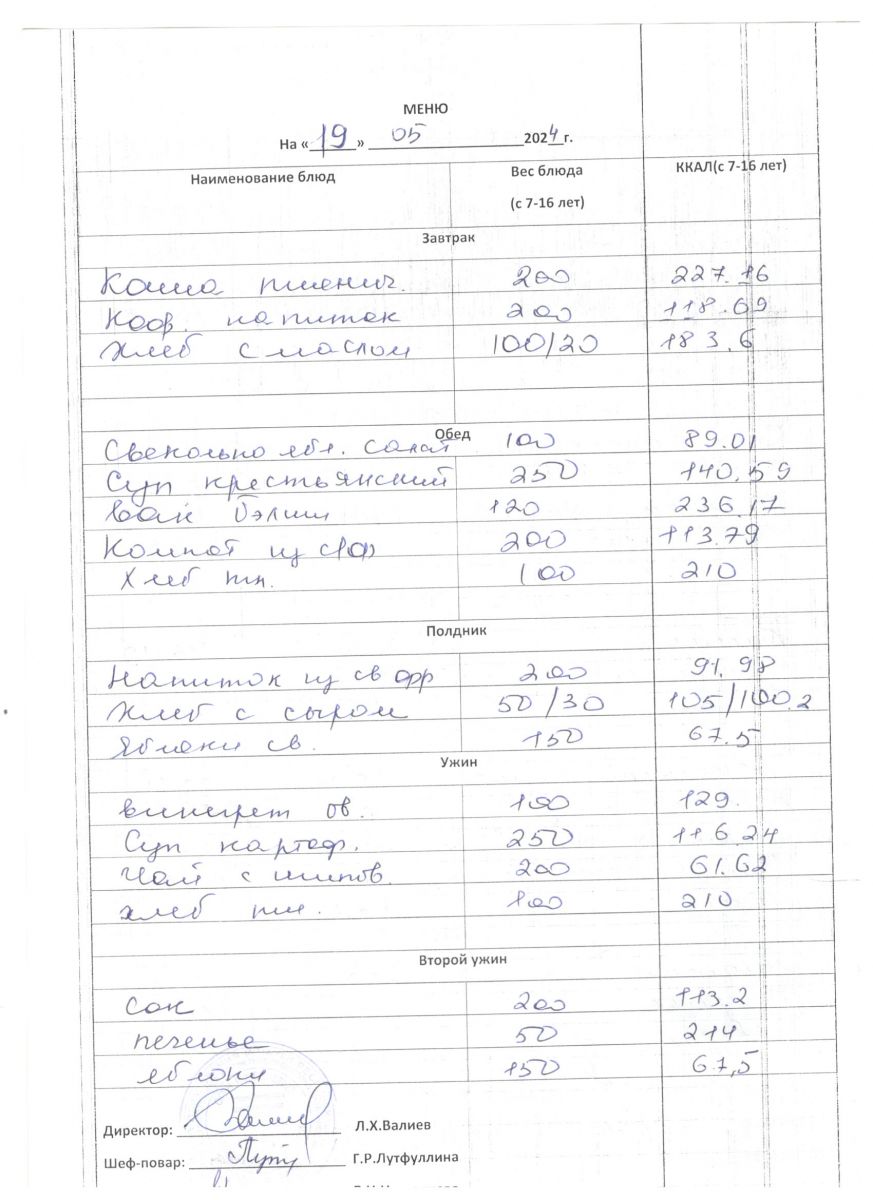 МЕНЮ
На «19» 05 2024 г.
Наименование блюд Вес блюда (с 7-16 лет) ККАЛ(с 7-16 лет)
Завтрак
Каша пшенич. 200 227.16
Коф. напиток 200 118.69
Хлеб с маслом 100/20 183.6
Обед
Свекольно ябл. салат 100 89.01
Суп крестьянский 250 140.59
Вак бэлиш 120 236.17
Компот из с/ф 200 113.79
Хлеб пш. 100 210
Полдник
Напиток из св фр 200 91.98
Хлеб с сыром 50/30 105/100.2
Яблоки св. 150 67.5
Ужин
винегрет ов. 100 129.
Суп картоф. 250 116.24
Чай с шипов. 200 61.62
хлеб пш. 100 210
Второй ужин
сок 200 113.2
печенье 50 214
яблоки 150 67,5
Директор: Л.Х.Валиев
Шеф-повар: Г.Р.Лутфуллина